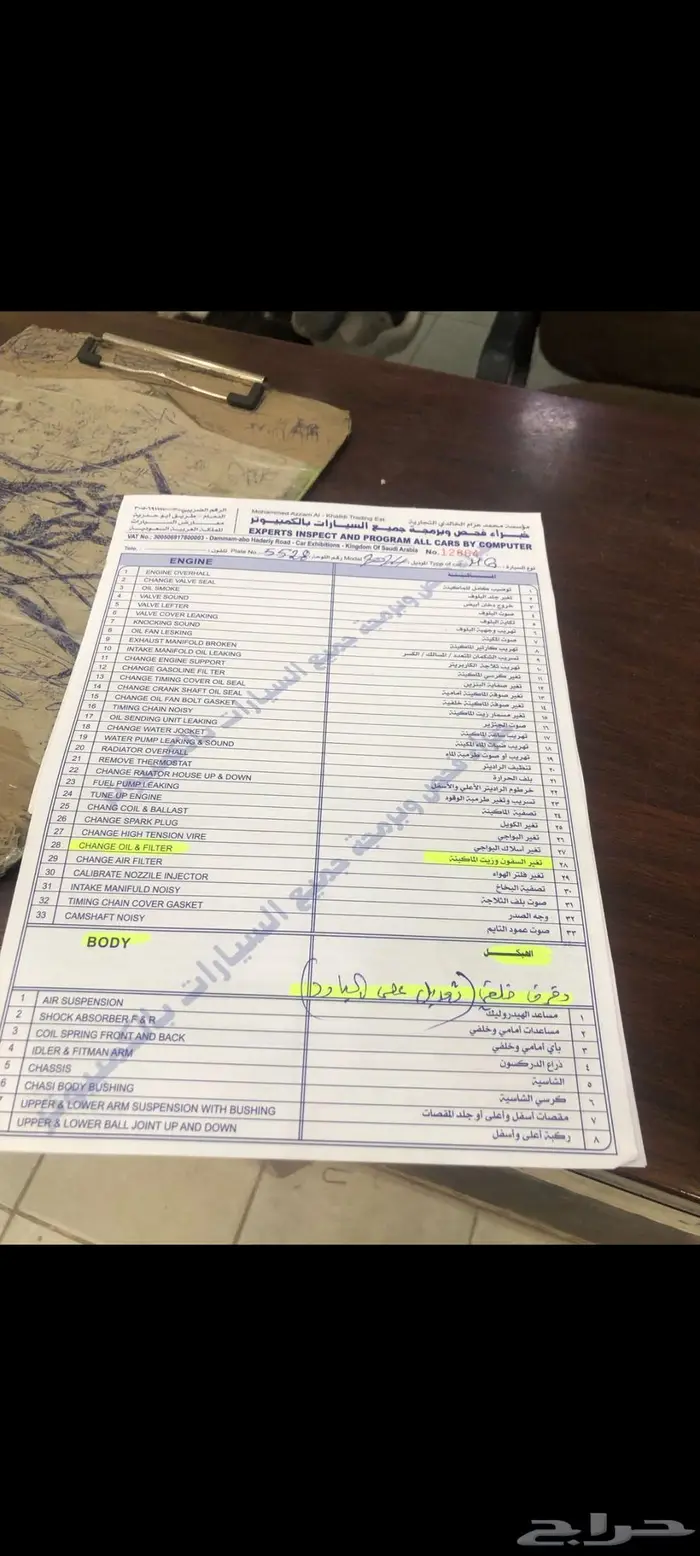 مؤسسة محمد حزام الخالدي التجارية
Mohammed Azzam Al - Khaldi Trading Est.
خبراء فحص وبرمجة جميع السيارات بالكمبيوتر
EXPERTS INSPECT AND PROGRAM ALL CARS BY COMPUTER
المملكة العربية السعودية
VAT No.: 300508917800003 - Dammam-abo Hadariy Road - Car Exhibitions - Kingdom Of Saudi Arabia
No.
Tele. تلفون: Plate No. 5528 رقم اللوحة Model 2024 الموديل Type of car نوع السيارة
ENGINE
1 ENGINE OVERHALL توضيب كامل للماكينة ١
2 CHANGE VALVE SEAL تغير جلد البلوف ٢
3 OIL SMOKE خروج دخان أبيض ٣
4 VALVE SOUND صوت البلوف ٤
5 VALVE LEFTER تكاية البلوف ٥
6 VALVE COVER LEAKING تهريب وجهية البلوف ٦
7 KNOCKING SOUND صوت المكينة ٧
8 OIL FAN LESKING تهريب كارتير الماكينة ٨
9 EXHAUST MANIFOLD BROKEN ٩
10 INTAKE MANIFOLD OIL LEAKING تهريب ثلاجة الكاربريتر ١٠
11 CHANGE ENGINE SUPPORT تغير كرسي الماكينة ١١
12 CHANGE GASOLINE FILTER تغير صفاية البنزين ١٢
13 CHANGE TIMING COVER OIL SEAL تغير صوفة الماكينة أمامية ١٣
14 CHANGE CRANK SHAFT OIL SEAL تغير صوفة الماكينة خلفية ١٤
15 CHANGE OIL FAN BOLT GASKET تغير مسمار زيت الماكينة ١٥
16 TIMING CHAIN NOISY صوت الجنزير ١٦
17 OIL SENDING UNIT LEAKING تهريب ساعة الماكينة ١٧
18 CHANGE WATER JOCKET تهريب طبات الماء المكينة ١٨
19 WATER PUMP LEAKING & SOUND تهريب أو صوت طرمبة الماء ١٩
20 RADIATOR OVERHALL تنظيف الراديتر ٢٠
21 REMOVE THERMOSTAT بلف الحرارة ٢١
22 CHANGE RAIATOR HOUSE UP & DOWN خرطوم الراديتر الأعلي والأسفل ٢٢
23 FUEL PUMP LEAKING تسريب وتغير طرمبة الوقود ٢٣
24 TUNE UP ENGINE تصفية الماكينة ٢٤
25 CHANG COIL & BALLAST تغير الكويل ٢٥
26 CHANGE SPARK PLUG تغير البواجي ٢٦
27 CHANGE HIGH TENSION VIRE تغير أسلاك البواجي ٢٧
28 CHANGE OIL & FILTER تغير السفون وزيت الماكينة ٢٨
29 CHANGE AIR FILTER تغير فلتر الهواء ٢٩
30 CALIBRATE NOZZLE INJECTOR تصفية البخاخ ٣٠
31 INTAKE MANIFULD NOISY صوت بلف الثلاجة ٣١
32 TIMING CHAIN COVER GASKET وجه الصدر ٣٢
33 CAMSHAFT NOISY صوت عمود التايم ٣٣
BODY الهيكل
1 AIR SUSPENSION مساعد الهيدروليك ١
2 SHOCK ABSORBER F & R مساعدات أمامي وخلفي ٢
3 COIL SPRING FRONT AND BACK بأي أمامي وخلفي ٣
4 IDLER & FITMAN ARM ذراع الدركسون ٤
5 CHASSIS الشاسية ٥
6 CHASI BODY BUSHING كرسي الشاسية ٦
7 UPPER & LOWER ARM SUSPENSION WITH BUSHING مقصات أسفل وأعلى أو جلد المقصات ٧
UPPER & LOWER BALL JOINT UP AND DOWN ركبة أعلى وأسفل ٨
حراج